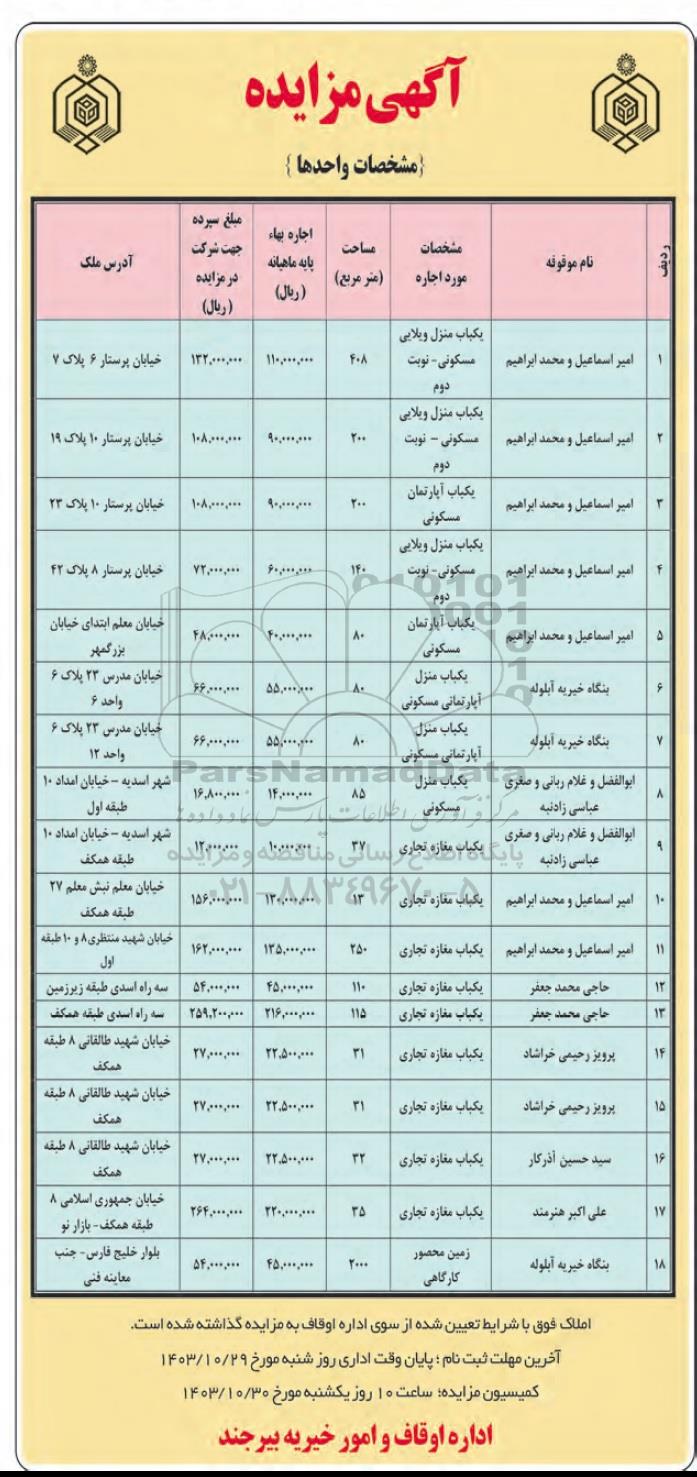 آگهی مزایده
{مشخصات واحدها}
ردیف | نام موقوفه | مشخصات مورد اجاره | مساحت (متر مربع) | اجاره بهاء پایه ماهیانه (ریال) | مبلغ سپرده جهت شرکت در مزایده (ریال) | آدرس ملک
۱ | امیر اسماعیل و محمد ابراهیم | یکباب منزل ویلایی مسکونی- نوبت دوم | ۴۰۸ | ۱۱۰,۰۰۰,۰۰۰ | ۱۳۲,۰۰۰,۰۰۰ | خیابان پرستار ۶ پلاک ۷
۲ | امیر اسماعیل و محمد ابراهیم | یکباب منزل ویلایی مسکونی – نوبت دوم | ۲۰۰ | ۹۰,۰۰۰,۰۰۰ | ۱۰۸,۰۰۰,۰۰۰ | خیابان پرستار ۱۰ پلاک ۱۹
۳ | امیر اسماعیل و محمد ابراهیم | یکباب آپارتمان مسکونی | ۲۰۰ | ۹۰,۰۰۰,۰۰۰ | ۱۰۸,۰۰۰,۰۰۰ | خیابان پرستار ۱۰ پلاک ۲۳
۴ | امیر اسماعیل و محمد ابراهیم | یکباب منزل ویلایی مسکونی- نوبت دوم | ۱۴۰ | ۶۰,۰۰۰,۰۰۰ | ۷۲,۰۰۰,۰۰۰ | خیابان پرستار ۸ پلاک ۴۲
۵ | امیر اسماعیل و محمد ابراهیم | یکباب آپارتمان مسکونی | ۸۰ | ۴۰,۰۰۰,۰۰۰ | ۴۸,۰۰۰,۰۰۰ | خیابان معلم ابتدای خیابان بزرگمهر
۶ | بنگاه خیریه آبلوله | یکباب منزل آپارتمانی مسکونی | ۸۰ | ۵۵,۰۰۰,۰۰۰ | ۶۶,۰۰۰,۰۰۰ | خیابان مدرس ۲۳ پلاک ۶ واحد ۶
۷ | بنگاه خیریه آبلوله | یکباب منزل آپارتمانی مسکونی | ۸۰ | ۵۵,۰۰۰,۰۰۰ | ۶۶,۰۰۰,۰۰۰ | خیابان مدرس ۲۳ پلاک ۶ واحد ۱۲
۸ | ابوالفضل و غلام ربانی و صغری عباسی زادنبه | یکباب منزل مسکونی | ۸۵ | ۱۴,۰۰۰,۰۰۰ | ۱۶,۸۰۰,۰۰۰ | شهر اسدیه – خیابان امداد ۱۰ طبقه اول
۹ | ابوالفضل و غلام ربانی و صغری عباسی زادنبه | یکباب مغازه تجاری | ۳۷ | ۱۰,۰۰۰,۰۰۰ | ۱۲,۰۰۰,۰۰۰ | شهر اسدیه – خیابان امداد ۱۰ طبقه همکف
۱۰ | امیر اسماعیل و محمد ابراهیم | یکباب مغازه تجاری | ۱۳ | ۱۳۰,۰۰۰,۰۰۰ | ۱۵۶,۰۰۰,۰۰۰ | خیابان معلم نبش معلم ۲۷ طبقه همکف
۱۱ | امیر اسماعیل و محمد ابراهیم | یکباب مغازه تجاری | ۲۵۰ | ۱۳۵,۰۰۰,۰۰۰ | ۱۶۲,۰۰۰,۰۰۰ | خیابان شهید منتظری ۸ و ۱۰ طبقه اول
۱۲ | حاجی محمد جعفر | یکباب مغازه تجاری | ۱۱۰ | ۴۵,۰۰۰,۰۰۰ | ۵۴,۰۰۰,۰۰۰ | سه راه اسدی طبقه زیرزمین
۱۳ | حاجی محمد جعفر | یکباب مغازه تجاری | ۱۱۵ | ۲۱۶,۰۰۰,۰۰۰ | ۲۵۹,۲۰۰,۰۰۰ | سه راه اسدی طبقه همکف
۱۴ | پرویز رحیمی خراشاد | یکباب مغازه تجاری | ۳۱ | ۲۲,۵۰۰,۰۰۰ | ۲۷,۰۰۰,۰۰۰ | خیابان شهید طالقانی ۸ طبقه همکف
۱۵ | پرویز رحیمی خراشاد | یکباب مغازه تجاری | ۳۱ | ۲۲,۵۰۰,۰۰۰ | ۲۷,۰۰۰,۰۰۰ | خیابان شهید طالقانی ۸ طبقه همکف
۱۶ | سید حسین آذرکار | یکباب مغازه تجاری | ۳۲ | ۲۲,۵۰۰,۰۰۰ | ۲۷,۰۰۰,۰۰۰ | خیابان شهید طالقانی ۸ طبقه همکف
۱۷ | علی اکبر هنرمند | یکباب مغازه تجاری | ۳۵ | ۲۲۰,۰۰۰,۰۰۰ | ۲۶۴,۰۰۰,۰۰۰ | خیابان جمهوری اسلامی ۸ طبقه همکف- بازار نو
۱۸ | بنگاه خیریه آبلوله | زمین محصور کارگاهی | ۲۰۰۰ | ۴۵,۰۰۰,۰۰۰ | ۵۴,۰۰۰,۰۰۰ | بلوار خلیج فارس- جنب معاینه فنی
ParsNamadData
مرکز فرآوری اطلاعات پارس نماد داده ها
پایگاه اطلاع رسانی مناقصه و مزایده
۰۲۱-۸۸۳۴۹۶۷۰-۵
املاک فوق با شرایط تعیین شده از سوی اداره اوقاف به مزایده گذاشته شده است.
آخرین مهلت ثبت نام ؛ پایان وقت اداری روز شنبه مورخ ۱۴۰۳/۱۰/۲۹
کمیسیون مزایده؛ ساعت ۱۰ روز یکشنبه مورخ ۱۴۰۳/۱۰/۳۰
اداره اوقاف و امور خیریه بیرجند